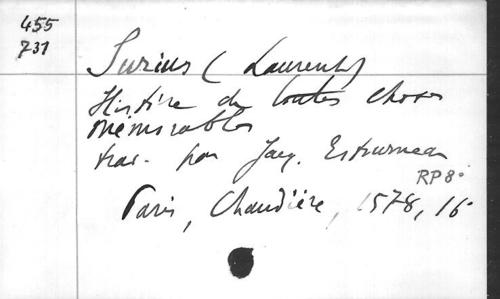 455
731
Surius (Laurent)
Histoire de toutes choses
mémorables
trad. par Jacq. Estourneau
RP 8°
Paris, Chaudière, 1578, 16°